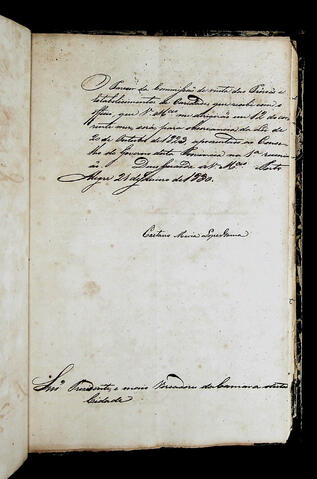 O Parecer da Commissão de visita das Prisões e
Estabelecimentos de Caridade, que recebi com o
Officio que V. Mces me dirigirão em 12 do cor-
rente mez, será para observancia da Lei de
20 de Outubro de 1823 apresentado ao Conse-
lho do Governo desta Provincia na 1ª reuni-
ão. Deos Guarde a V. Mces Porto
Alegre 21 de Junho de 1830.
Caetano Maria Lopes Gama
Snrs. Presidente, e mais Vereadores da Camara desta
Cidade